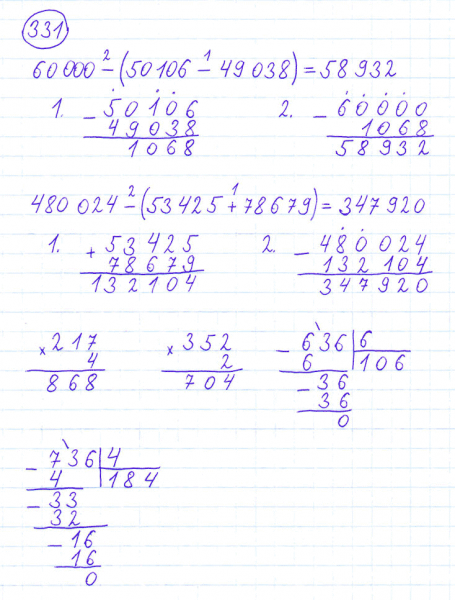 331
60 000 - (50106 - 49038) = 58 932
2 1
1. - 50106
49038
1068
2. - 60000
1068
58932
480 024 - (53 425 + 78679) = 347 920
2 1
1. + 53 425
78 679
132104
2. - 480 024
132 104
347920
× 217
4
868
× 352
2
704
- 636 | 6
6 | 106
- 36
36
0
- 736 | 4
4 | 184
- 33
32
- 16
16
0